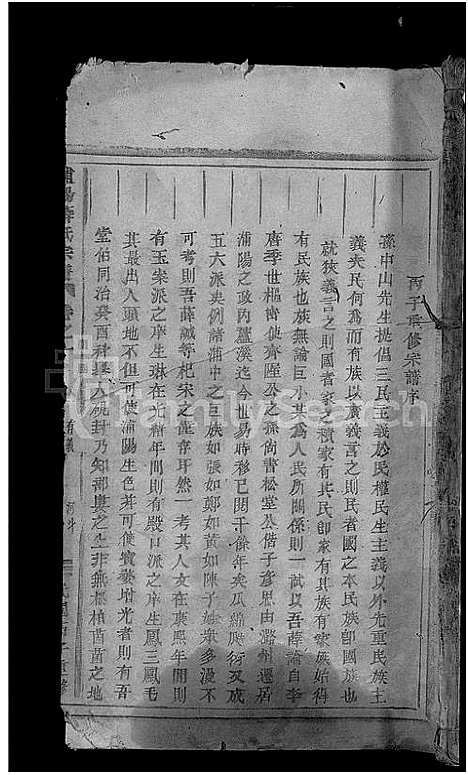 丙子重修宗譜序
孫中山先生提倡三民主義於民權民生主義以外尤重民族主
義夫民何為而有族以廣義言之則民者國之本民族卽國族也
就狹義言之則國者家之積家有其民卽家有其族有家族始得
有民族也族無論巨小其為人民所關係則一試以吾薛論自李
唐季世樞啣使齊陞公之孫尙書松堂公偕子彥思由潞州遷居
浦陽之政內薑溪迄今世易時移已閱千餘年矣瓜綿聯衍又成
五六派矣例諸浦中之巨族如張如鄭如黃如陳子姓衆多漫不
可考則吾薛鹹等杞宋之僅存耳然一考其人文在康熙年間則
有玉柴派之庠生琳在光緖年間則有殿口派之庠生鳳三鳳毛
其最出人頭地不但可使浦陽生色并可使寶婺增光者則有吾
堂伯同治癸酉科舉人硯封乃知鄙婁之土非無松柏菑之地
FamilySearch